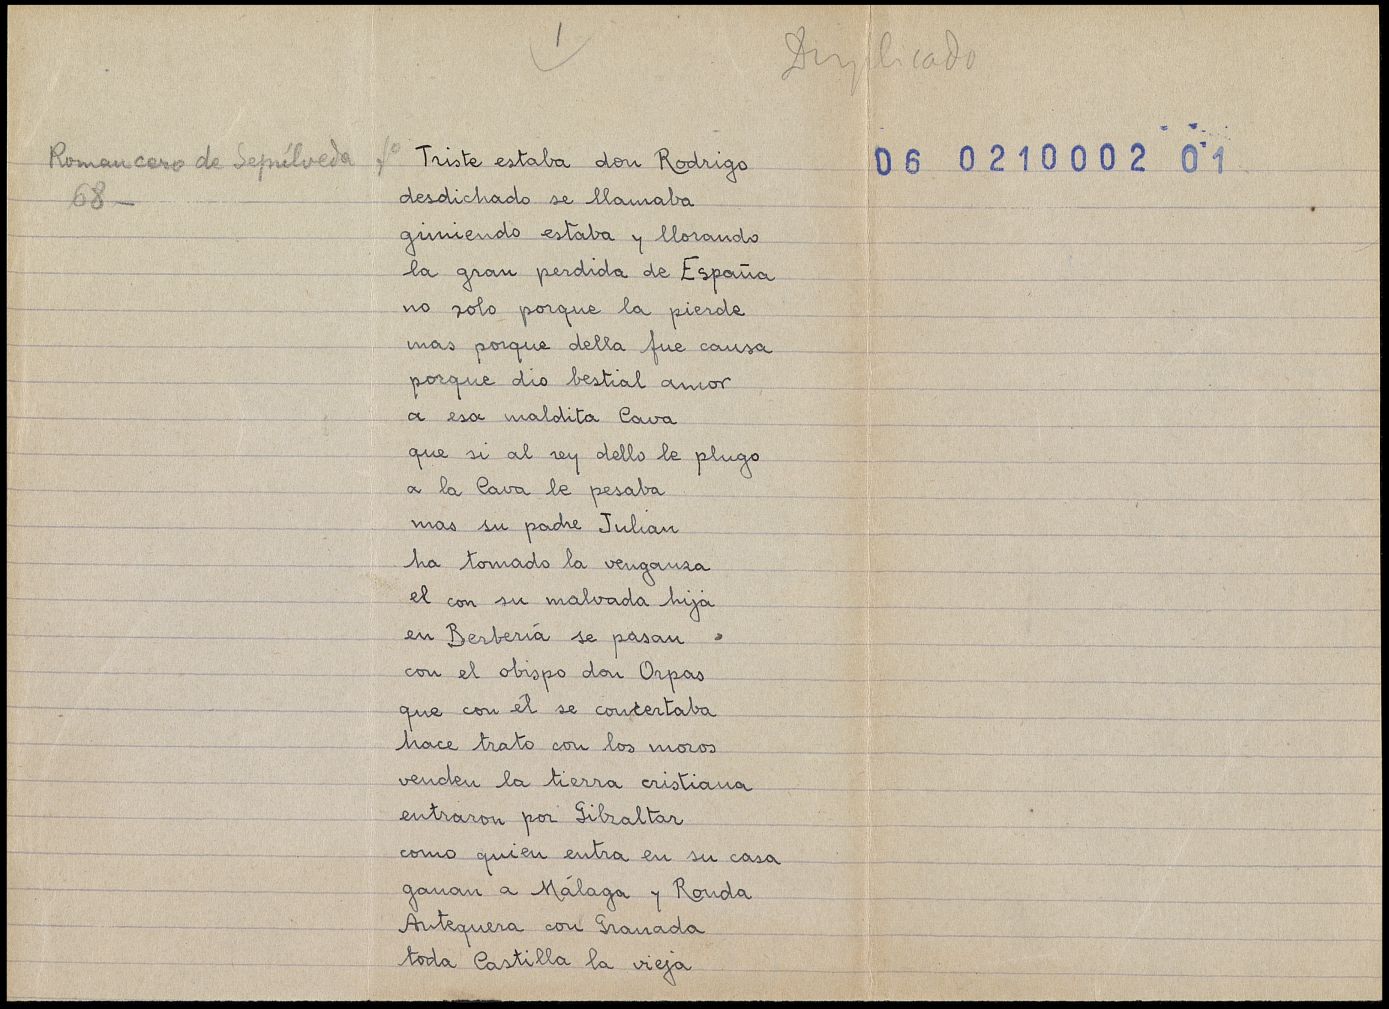 1
Duplicado
Romancero de Sepúlveda fº
68—
06 0210002 01
Triste estaba don Rodrigo
desdichado se llamaba
gimiendo estaba y llorando
la gran perdida de España
no solo porque la pierde
mas porque della fue causa
porque dio bestial amor
a esa maldita Cava
que si al rey dello le plugo
a la Cava le pesaba
mas su padre Julián
ha tomado la venganza
el con su malvada hija
en Berbería se pasan
con el obispo don Orpas
que con él se concertaba
hace trato con los moros
venden la tierra cristiana
entraron por Gibraltar
como quien entra en su casa
ganan a Málaga y Ronda
Antequera con Granada
toda Castilla la vieja